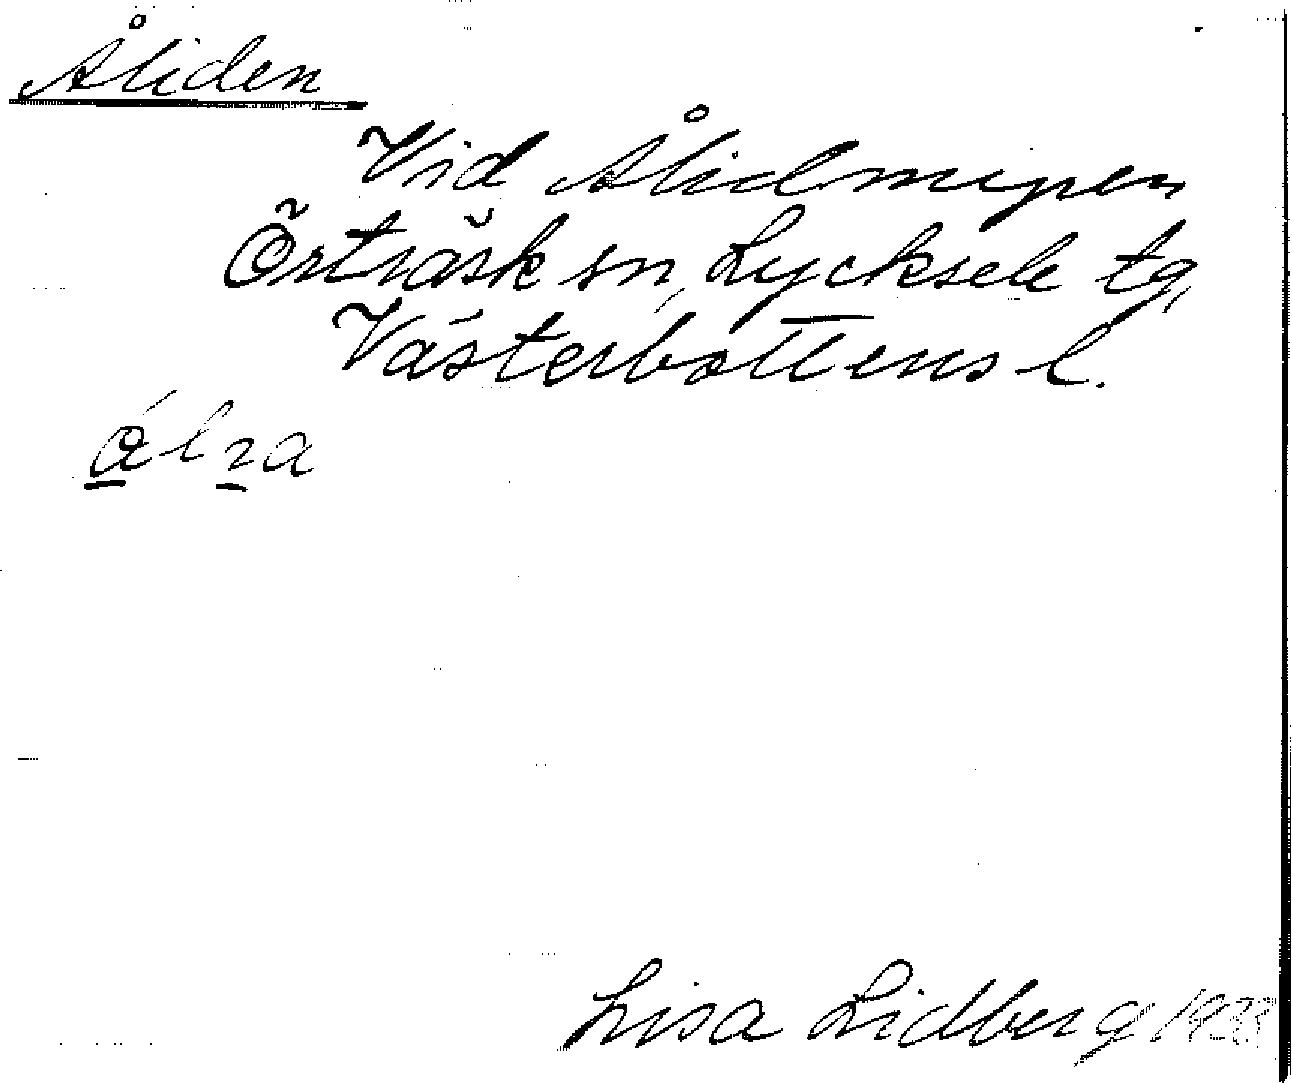 Åliden
Vid Ålidmyren
Örträsk sn, Lycksele tg,
Västerbottens l.
Lisa Lidberg